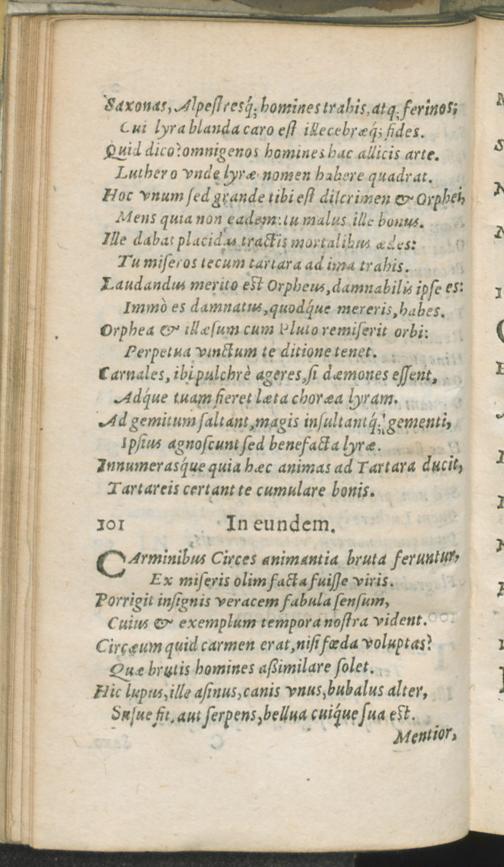 Saxonas, Alpestresq́; homines trahis, atq; ferinos;
Cui lyra blanda caro est illecebræq́; fides.
Quid dico? omnigenos homines hac allicis arte.
Luthero vnde lyræ nomen habere quadrat.
Hoc vnum sed grande tibi est discrimen & Orphei,
Mens quia non eadem: tu malus ille bonus.
Ille dabat placidas tractis mortalibus ædes:
Tu miseros tecum tartara ad ima trahis.
Laudandus merito est Orpheus, damnabilis ipse es:
Immò es damnatus, quodq́ue mereris, habes.
Orphea & illæsum cum Pluto remiserit orbi:
Perpetua vinctum te ditione tenet.
Carnales, ibi pulchrè ageres, si dæmones essent,
Adq́ue tuam fieret læta choræa lyram.
Ad gemitum saltant, magis insultantq́; gementi,
Ipsius agnoscunt sed benefacta lyræ.
Innumerasq́ue quia hæc animas ad Tartara ducit,
Tartareis certant te cumulare bonis.
101 In eundem.
CArminibus Circes animantia bruta feruntur,
Ex miseris olim facta fuisse viris.
Porrigit insignis veracem fabula sensum,
Cuius & exemplum tempora nostra vident.
Circæum quid carmen erat, nisi fœda voluptas?
Quæ brutis homines aßimilare solet.
Hic lupus, ille asinus, canis vnus, bubalus alter,
Susue fit, aut serpens, bellua cuiq́ue sua est.
Mentior,